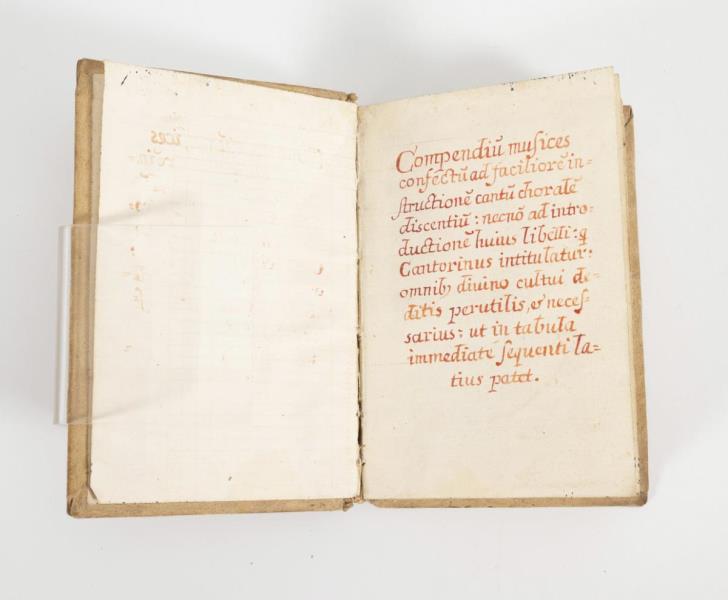 Compendiū musices
confectū ad faciliorē in=
structionē cantū choralē
discentiū: necnō ad intro=
ductionē huius libelli: q
Cantorinus intitulatur:
omnib; divino cultui de=
ditis perutilis, & neces=
sarius: ut in tabula
immediate sequenti la=
tius patet.